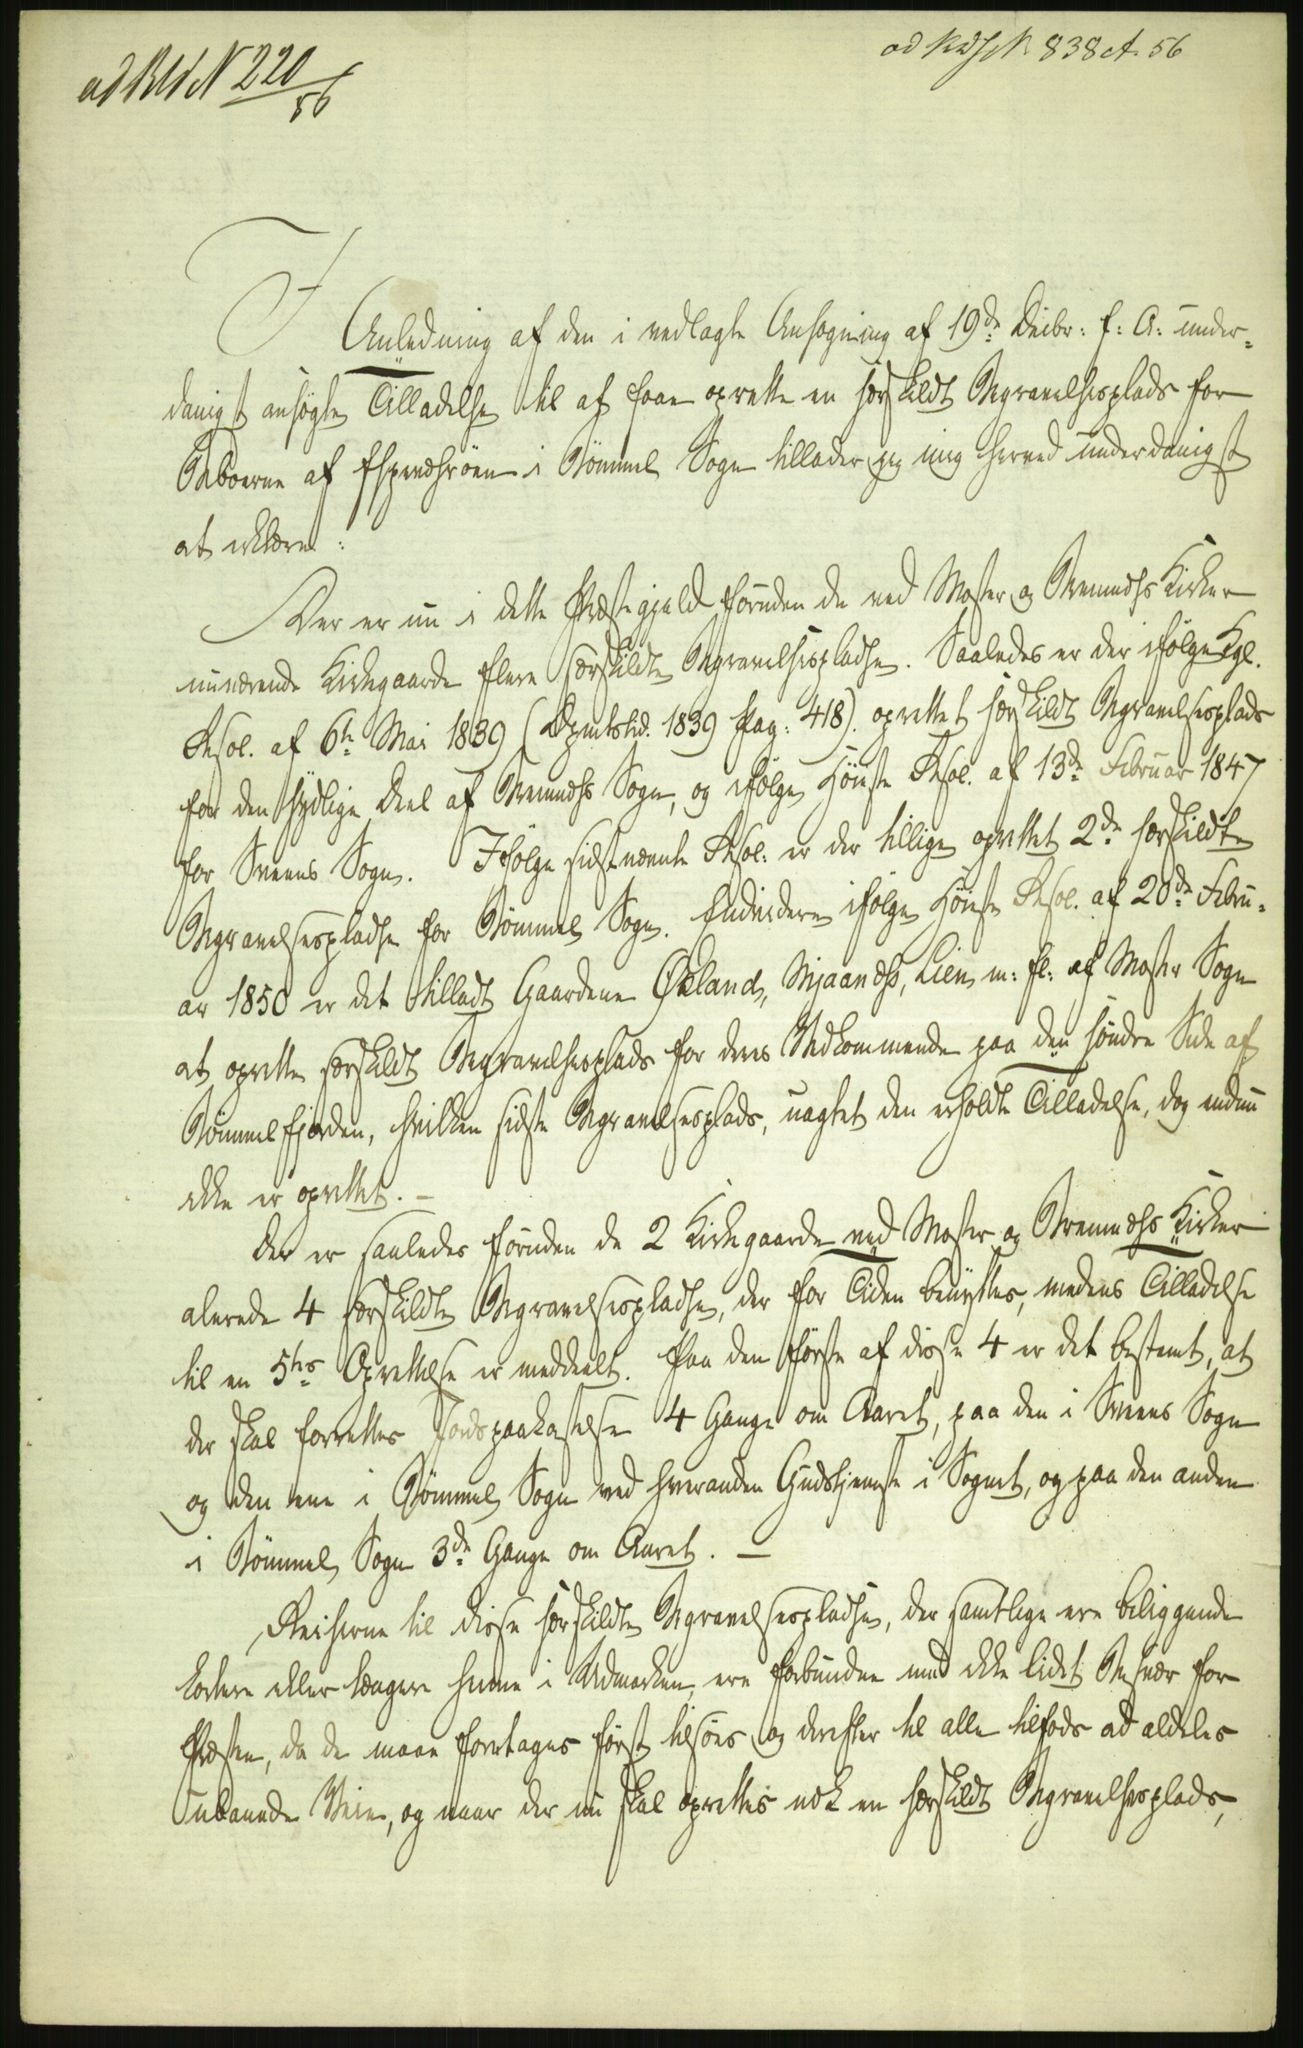 ad Bd N 220/56
ad Kdf N. 838 A. 56
I
Anledning af den i vedlagte Ansøgning af 19de Decbr: f: A: under-
danigst ansøgte Tilladelse til at faae oprette en særskildt Begravelsesplads for
Beboerne af Espevær i Bömmel Sogn tillader jeg mig herved underdanigst
at erklære:
Der er nu i dette Præstegjeld foruden de ved Moster og Bremnæs Kirker
nuværende Kirkegaarde flere særskildte Begravelsespladse. Saaledes er der ifølge Kgl.
Resol. af 6te Mai 1839 (Dpmtstid. 1839 Pag: 418). oprettet særskildt Begravelsesplads
for den sydlige Deel af Bremnæs Sogn, og ifølge Høieste Resol. af 13de Februar 1847
for Sveens Sogn. Ifølge sidstnævnte Resol: er der tillige oprettet 2de særskildte
Begravelsespladse for Bömmel Sogn. Endvidere ifølge Høieste Resol. af 20de Febru-
ar 1850 er det tilladt Gaardene Økland, Mjaanæs, Lien m: fl: af Moster Sogn
at oprette særskildt Begravelsesplads for deres Vedkommende paa den söndre Side af
Bömmelfjorden, hvilken sidste Begravelsesplads, uagtet den erholdte Tilladelse, dog endnu
ikke er oprettet. —
Der er saaledes foruden de 2 Kirkegaarde ved Moster og Bremnæs Kirker
alerede 4 særskildte Begravelsespladse, der for Tiden benyttes, medens Tilladelse
til en 5tes Oprettelse er meddeelt. Paa den første af disse 4 er det bestemt, at
der skal forrettes Jordpaakastelse 4 Gange om Aaret, paa den i Sveens Sogn
og den ene i Bömmel Sogn ved hveranden Gudstjeneste i Sognet, og paa den anden
i Bömmel Sogn 3de Gange om Aaret. —
Reiserne til disse særskildte Begravelsespladse, der samtlige ere beliggende
kortere eller længere henne i Udmarken, ere forbundne med ikke lidet Besvær for
Præsten, da de maae foretages først tilsöes og derefter til alle tilfods ad aldeles
ubanede Veie, og naar der nu skal oprettes nok en særskildt Begravelsesplads,